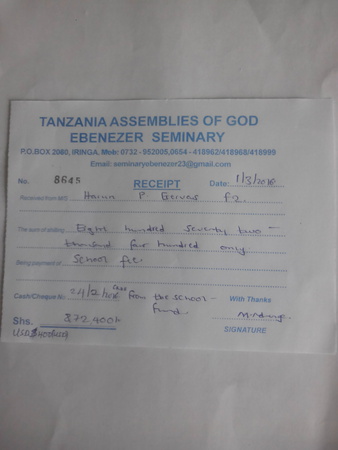 TANZANIA ASSEMBLIES OF GOD
EBENEZER SEMINARY
P.O.BOX 2060, IRINGA, Mob: 0732 - 952805,0654 - 418962/418968/418999
Email: seminaryebenezer23@gmail.com
No. 8645 RECEIPT Date: 1/3/2016
Received from M/S Haruna P. Gervas F.2
The sum of shilling Eight hundred seventy two -
thousand four hundred only
Being payment of School fee
Cash/Cheque № 24/2/2016 from the school - With Thanks
fund
Shs. 872 400/=
SIGNATURE